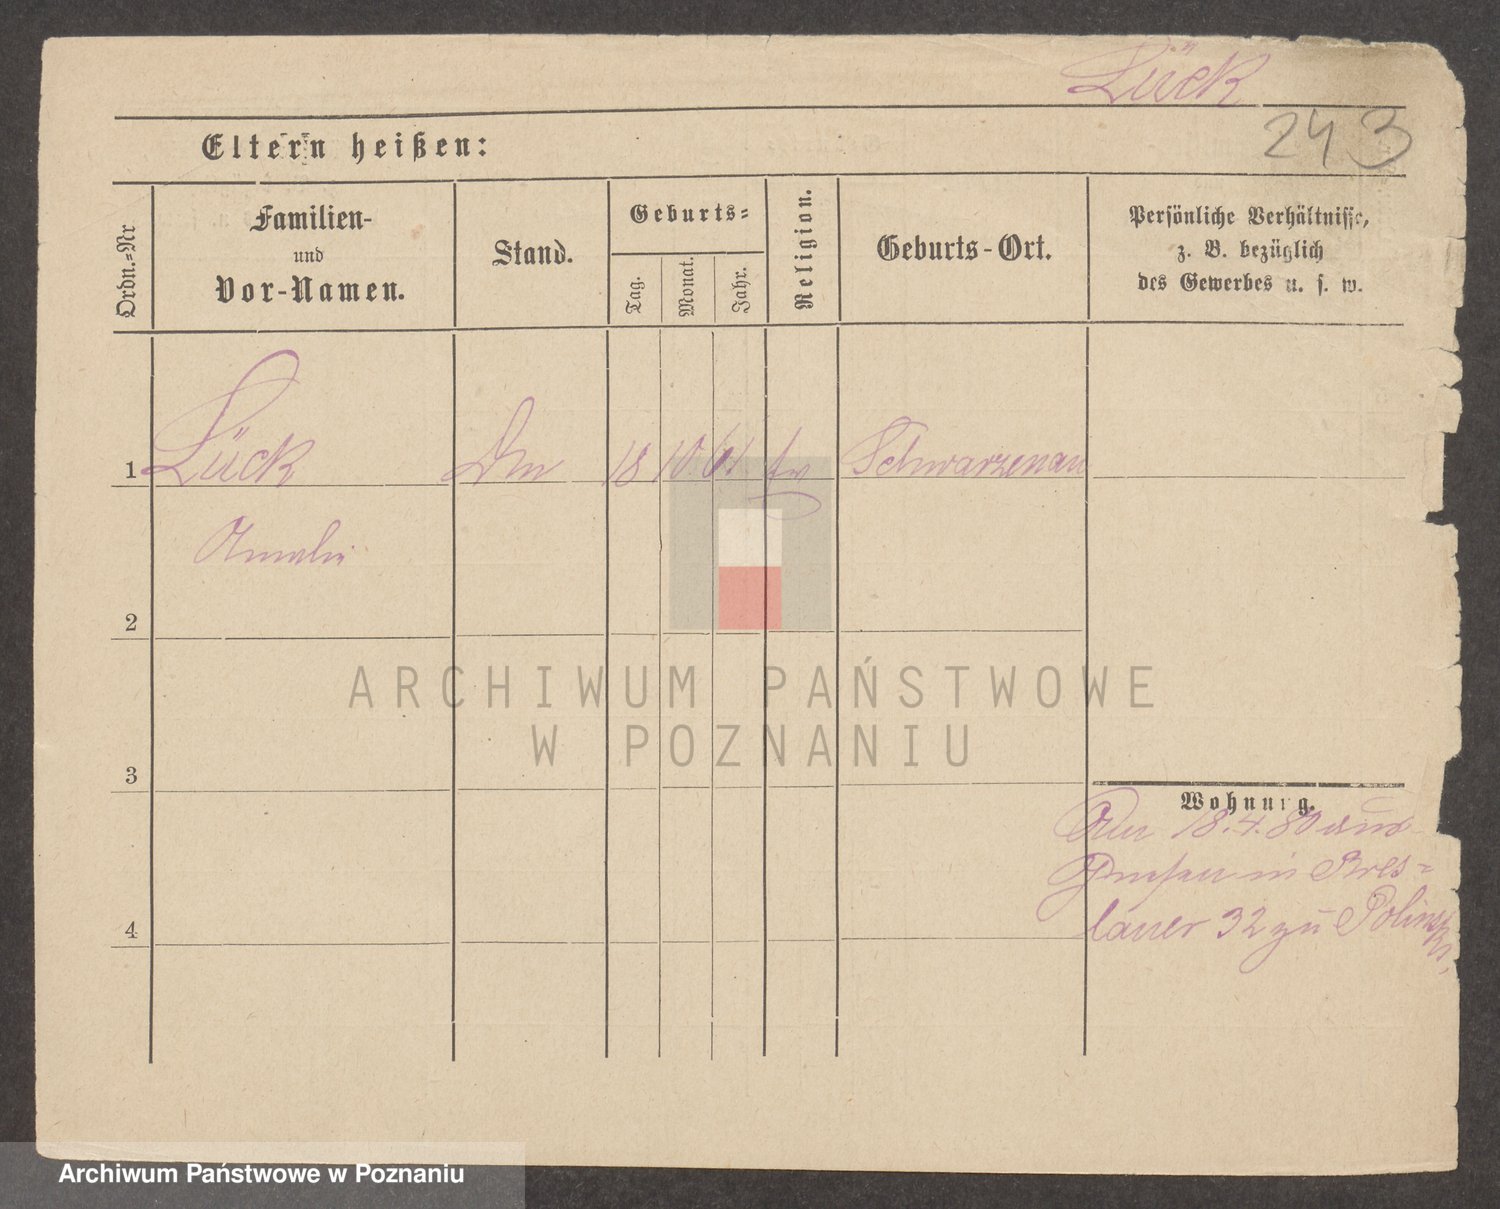 Lück
243
Eltern heißen:
Ordn.=Nr
Familien-
und
Vor-Namen.
Stand.
Geburts=
Tag.
Monat.
Jahr.
Religion.
Geburts-Ort.
Persönliche Verhältnisse,
z. B. bezüglich
des Gewerbes u. s. w.
1 Lück 18 10 61 Schwarzenau
Amalie
2
3
Wohnung.
18.4.80 aus
Gnesen in Bres=
4
lauer 32 zu
ARCHIWUM PAŃSTWOWE
W POZNANIU
Archiwum Państwowe w Poznaniu